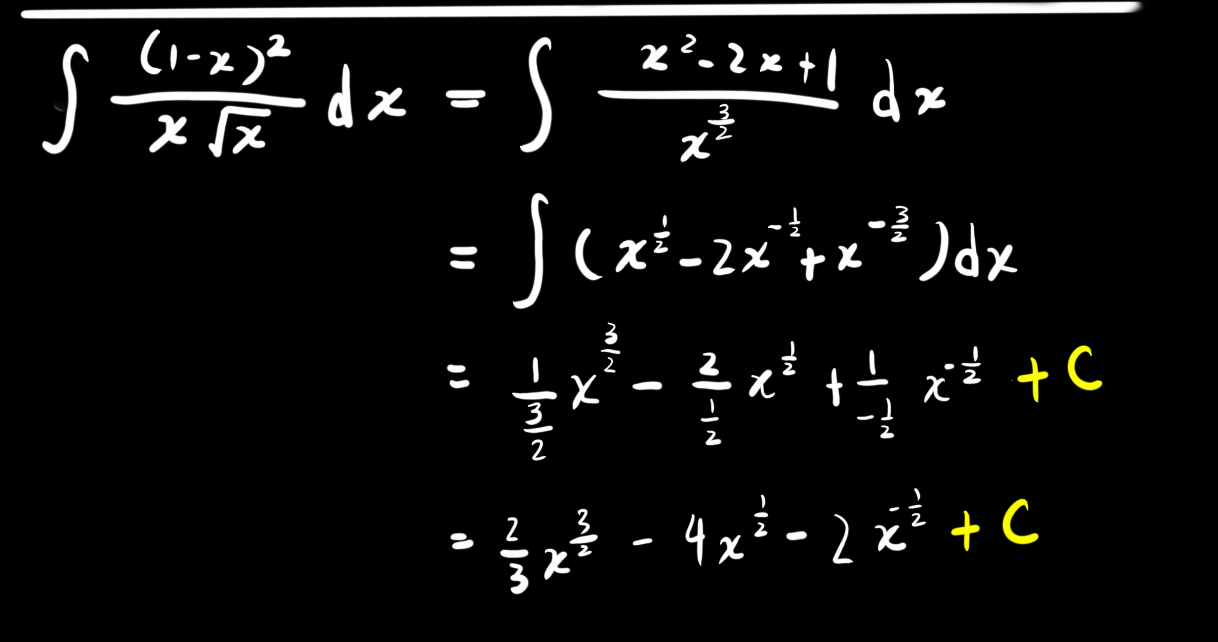 ∫ (1-x)²/(x√x) dx = ∫ (x²-2x+1)/x^(3/2) dx
= ∫ (x^(1/2) - 2x^(-1/2) + x^(-3/2)) dx
= 1/(3/2) x^(3/2) - 2/(1/2) x^(1/2) + 1/(-1/2) x^(-1/2) + C
= 2/3 x^(3/2) - 4x^(1/2) - 2x^(-1/2) + C